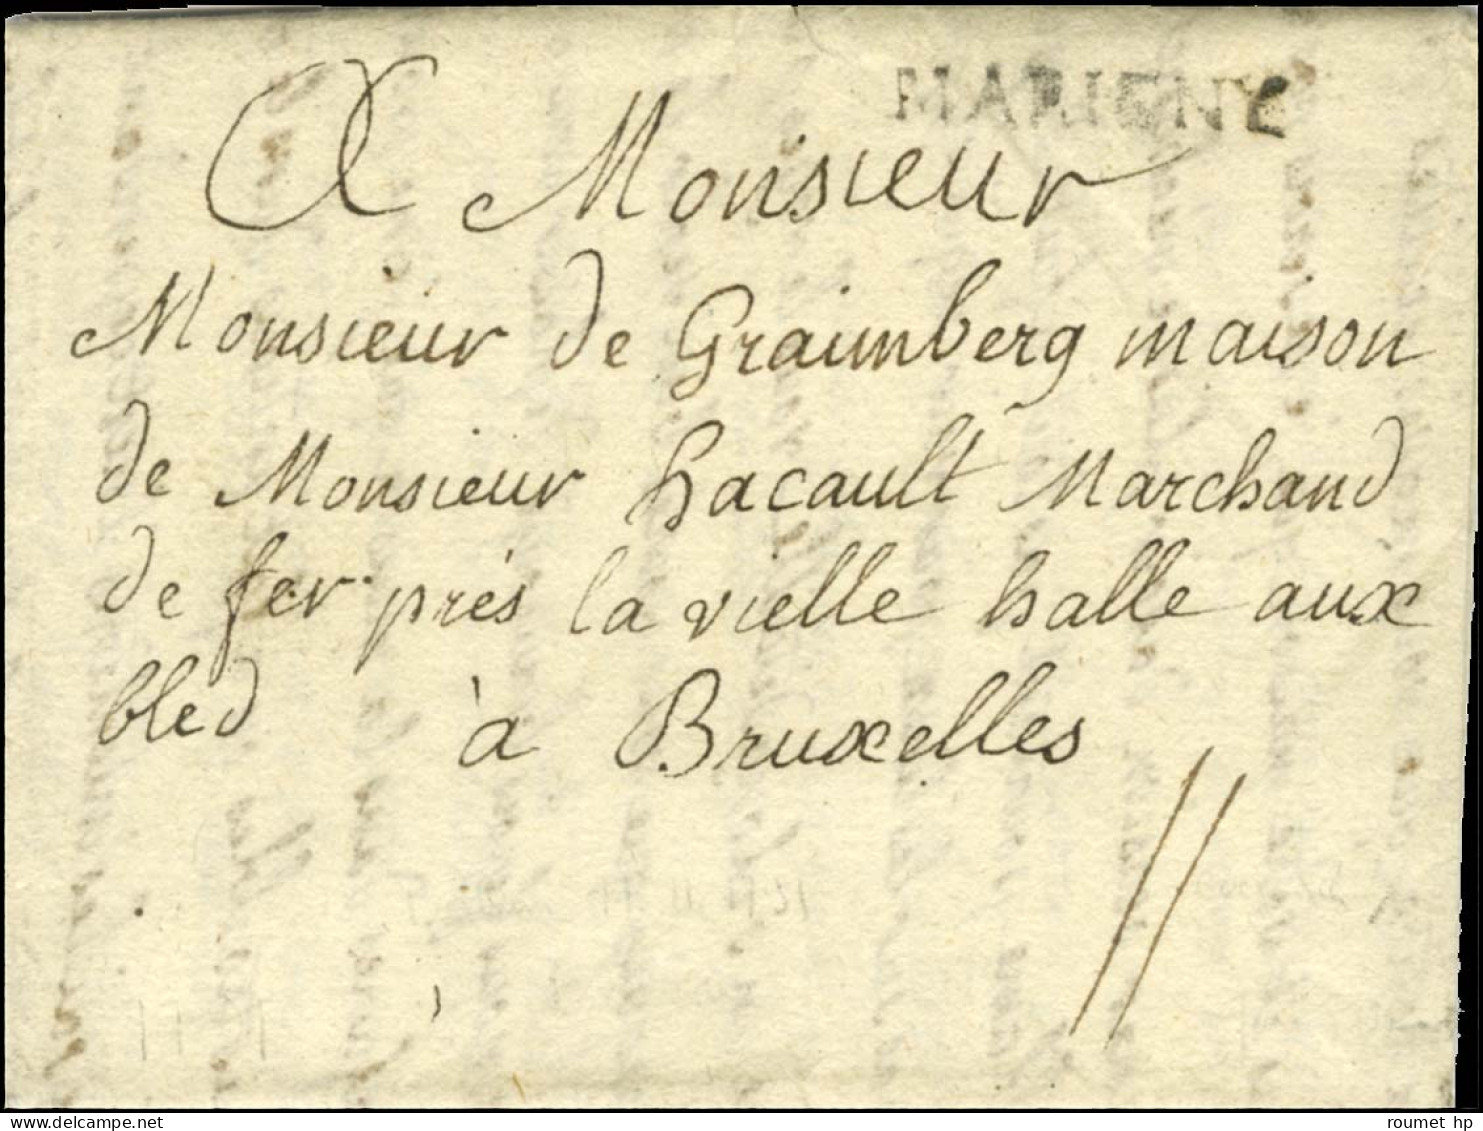 MARIGNY
A Monsieur
Monsieur de Graimberg maison
de Monsieur hacault Marchand
de fer près la vielle halle aux
bled à Bruxelles
11
roumet hp